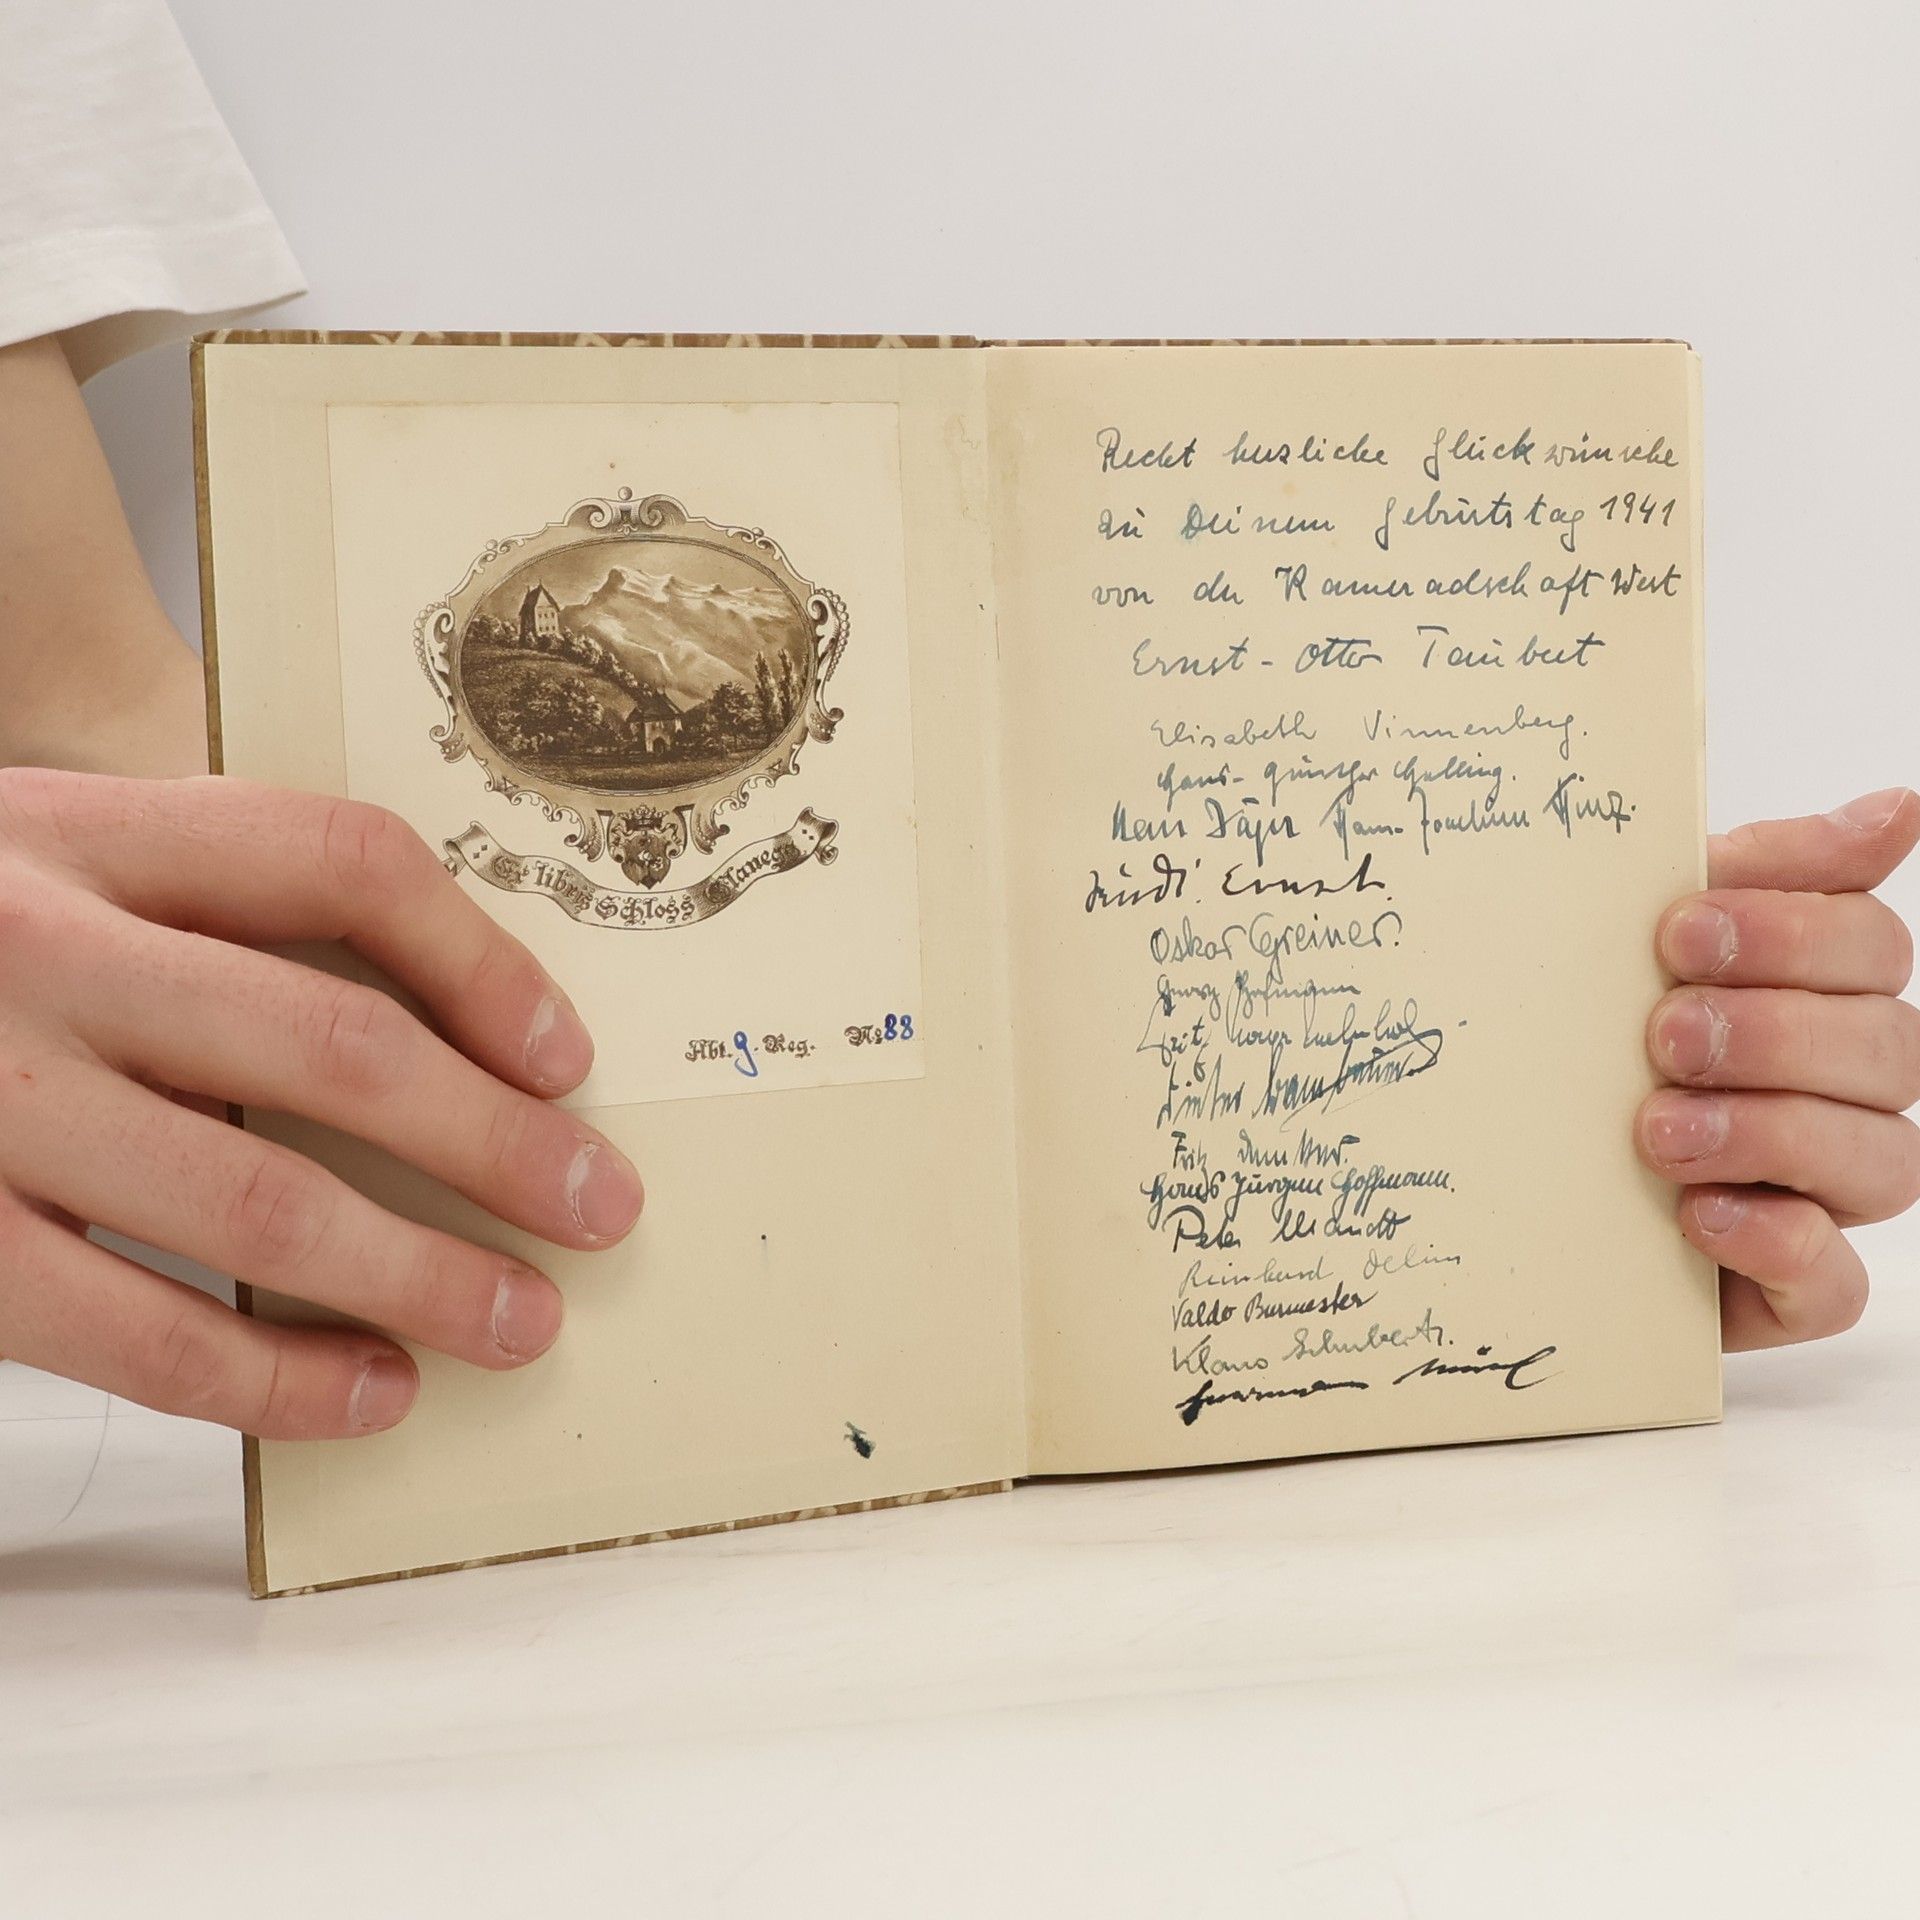 Ex libris Schloss Glanegg
Abt. g. Reg. No 88
Recht herzliche Glückwünsche
zu Deinem Geburtstag 1941
von der Kameradschaft West
Ernst-Otto Taubert
Elisabeth Vinnenberg.
Hans-Günther Helling.
Hans Jäger Hans-Joachim Hinz.
Rudi Ernst.
Oskar Greiner.
Georg Hofmann
Fritz
Dieter
Fritz
Hans Jürgen Hoffmann.
Peter
Reinhard
Valdo Burmester
Klaus Schubert.
Hermann